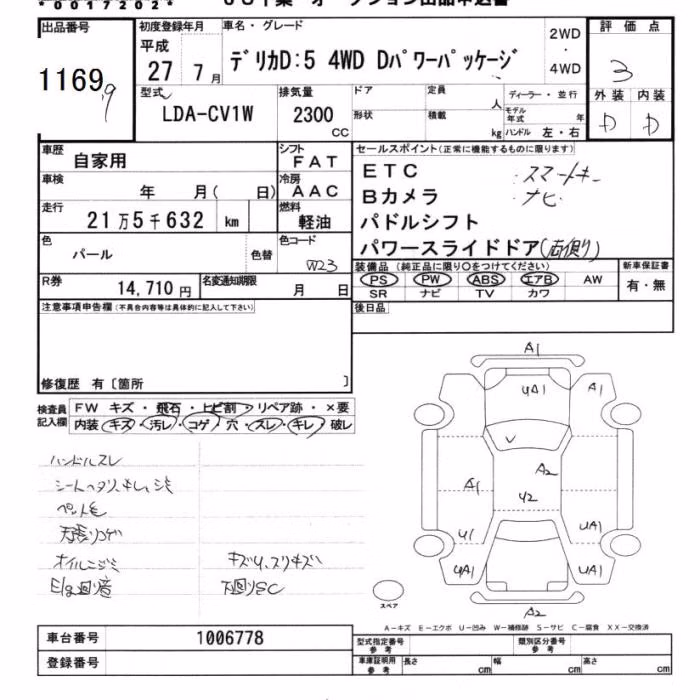 *00172024*
出品番号 初度登録年月 車名・グレード 2WD・4WD 評価点
11699
平成27年7月
デリカD:5 4WD Dパワーパッケージ
3
外装 内装
D D
型式 LDA-CV1W
排気量 2300 CC
ドア 定員 人 ディーラー・並行
形状 積載 kg モデル年式 年
ハンドル 左・右
車歴 自家用
シフト FAT
セールスポイント(正常に機能するものに限ります)
ETC スマートキー
Bカメラ ナビ
パドルシフト
パワースライドドア(右側り)
車検 年 月( 日)
冷房 AAC
走行 21万5千632 km
燃料 軽油
色 パール 色替
色コード W23
装備品(純正品に限り○をつけてください) 新車保証書
PS PW ABS エアB AW 有・無
SR ナビ TV カワ
R券 14,710円
名変通知期限 月 日
後日品
注意事項申告欄(不具合内容等は具体的に記入して下さい)
修復歴 有〔箇所 〕
検査員記入欄
FW キズ・飛石・ヒビ割・リペア跡・×要
内装 キズ・汚レ・コゲ・穴・スレ・キレ・破レ
ハンドルスレ
シートヘタリ、キレ、シミ
ペット毛
天張りコゲ
オイルニジミ キズU、スリキズ
E/g廻り音 下廻りSC
A1
UA1 A1
V
A2
A1 U2
U1 UA1
UA1 UA1
スペア A2
A-キズ E-エクボ U-凹み W-補修跡 S-サビ C-腐食 XX-交換済
車台番号 1006778
登録番号
型式指定番号 参考 類別区分番号 参考
車庫証明用 参考 長さ cm 幅 cm 高さ cm